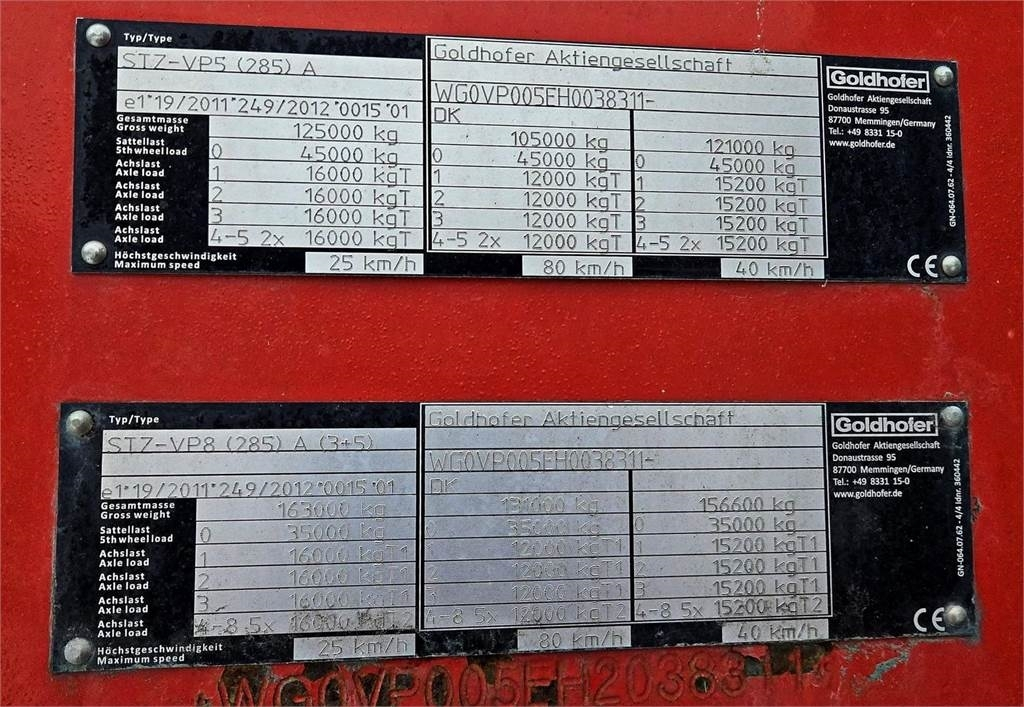 Typ/Type
STZ-VP5 (285) A
e1*19/2011*249/2012*0015*01
Gesamtmasse
Gross weight
125000 kg
Sattellast
5th wheel load
0 45000 kg
Achslast
Axle load
1 16000 kgT
Achslast
Axle load
2 16000 kgT
Achslast
Axle load
3 16000 kgT
Achslast
Axle load
4-5 2x 16000 kgT
Höchstgeschwindigkeit
Maximum speed
25 km/h
Goldhofer Aktiengesellschaft
WG0VP005EH0038311-
DK
105000 kg
0 45000 kg
1 12000 kgT
2 12000 kgT
3 12000 kgT
4-5 2x 12000 kgT
80 km/h
121000 kg
0 45000 kg
1 15200 kgT
2 15200 kgT
3 15200 kgT
4-5 2x 15200 kgT
40 km/h
Goldhofer
Goldhofer Aktiengesellschaft
Donaustrasse 95
87700 Memmingen/Germany
Tel.: +49 8331 15-0
www.goldhofer.de
CE
GN-064.07.62 - 4/4 Idnr. 360442
Typ/Type
STZ-VP8 (285) A (3+5)
e1*19/2011*249/2012*0015*01
Gesamtmasse
Gross weight
163000 kg
Sattellast
5th wheel load
0 35000 kg
Achslast
Axle load
1 16000 kgT1
Achslast
Axle load
2 16000 kgT1
Achslast
Axle load
3 16000 kgT1
Achslast
Axle load
4-8 5x 16000 kgT2
Höchstgeschwindigkeit
Maximum speed
25 km/h
Goldhofer Aktiengesellschaft
WG0VP005EH0038311-
DK
131000 kg
35000 kg
1 12000 kgT1
2 12000 kgT1
3 12000 kgT1
4-8 5x 12000 kgT2
80 km/h
156600 kg
0 35000 kg
1 15200 kgT1
2 15200 kgT1
3 15200 kgT1
4-8 5x 15200 kgT2
40 km/h
Goldhofer
Goldhofer Aktiengesellschaft
Donaustrasse 95
87700 Memmingen/Germany
Tel.: +49 8331 15-0
www.goldhofer.de
CE
GN-064.07.62 - 4/4 Idnr. 360442
WG0VP005EH2038311